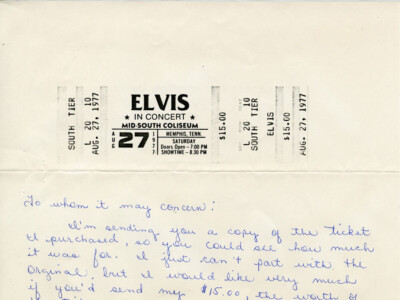 SOUTH TIER
L 20 10
AUG. 27, 1977
ELVIS
★ IN CONCERT ★
MID-SOUTH COLISEUM
AUG 27 1977
MEMPHIS, TENN.
SATURDAY
Doors Open - 7:00 PM
SHOWTIME - 8:30 PM
$15.00
SOUTH TIER
L 20 10
ELVIS
$15.00
AUG. 27, 1977
To whom it may concern:
I'm sending you a copy of the ticket
I purchased, so you could see how much
it was for. I just can't part with the
orginal, but I would like very much
if you'd send my $15.00, the worth of